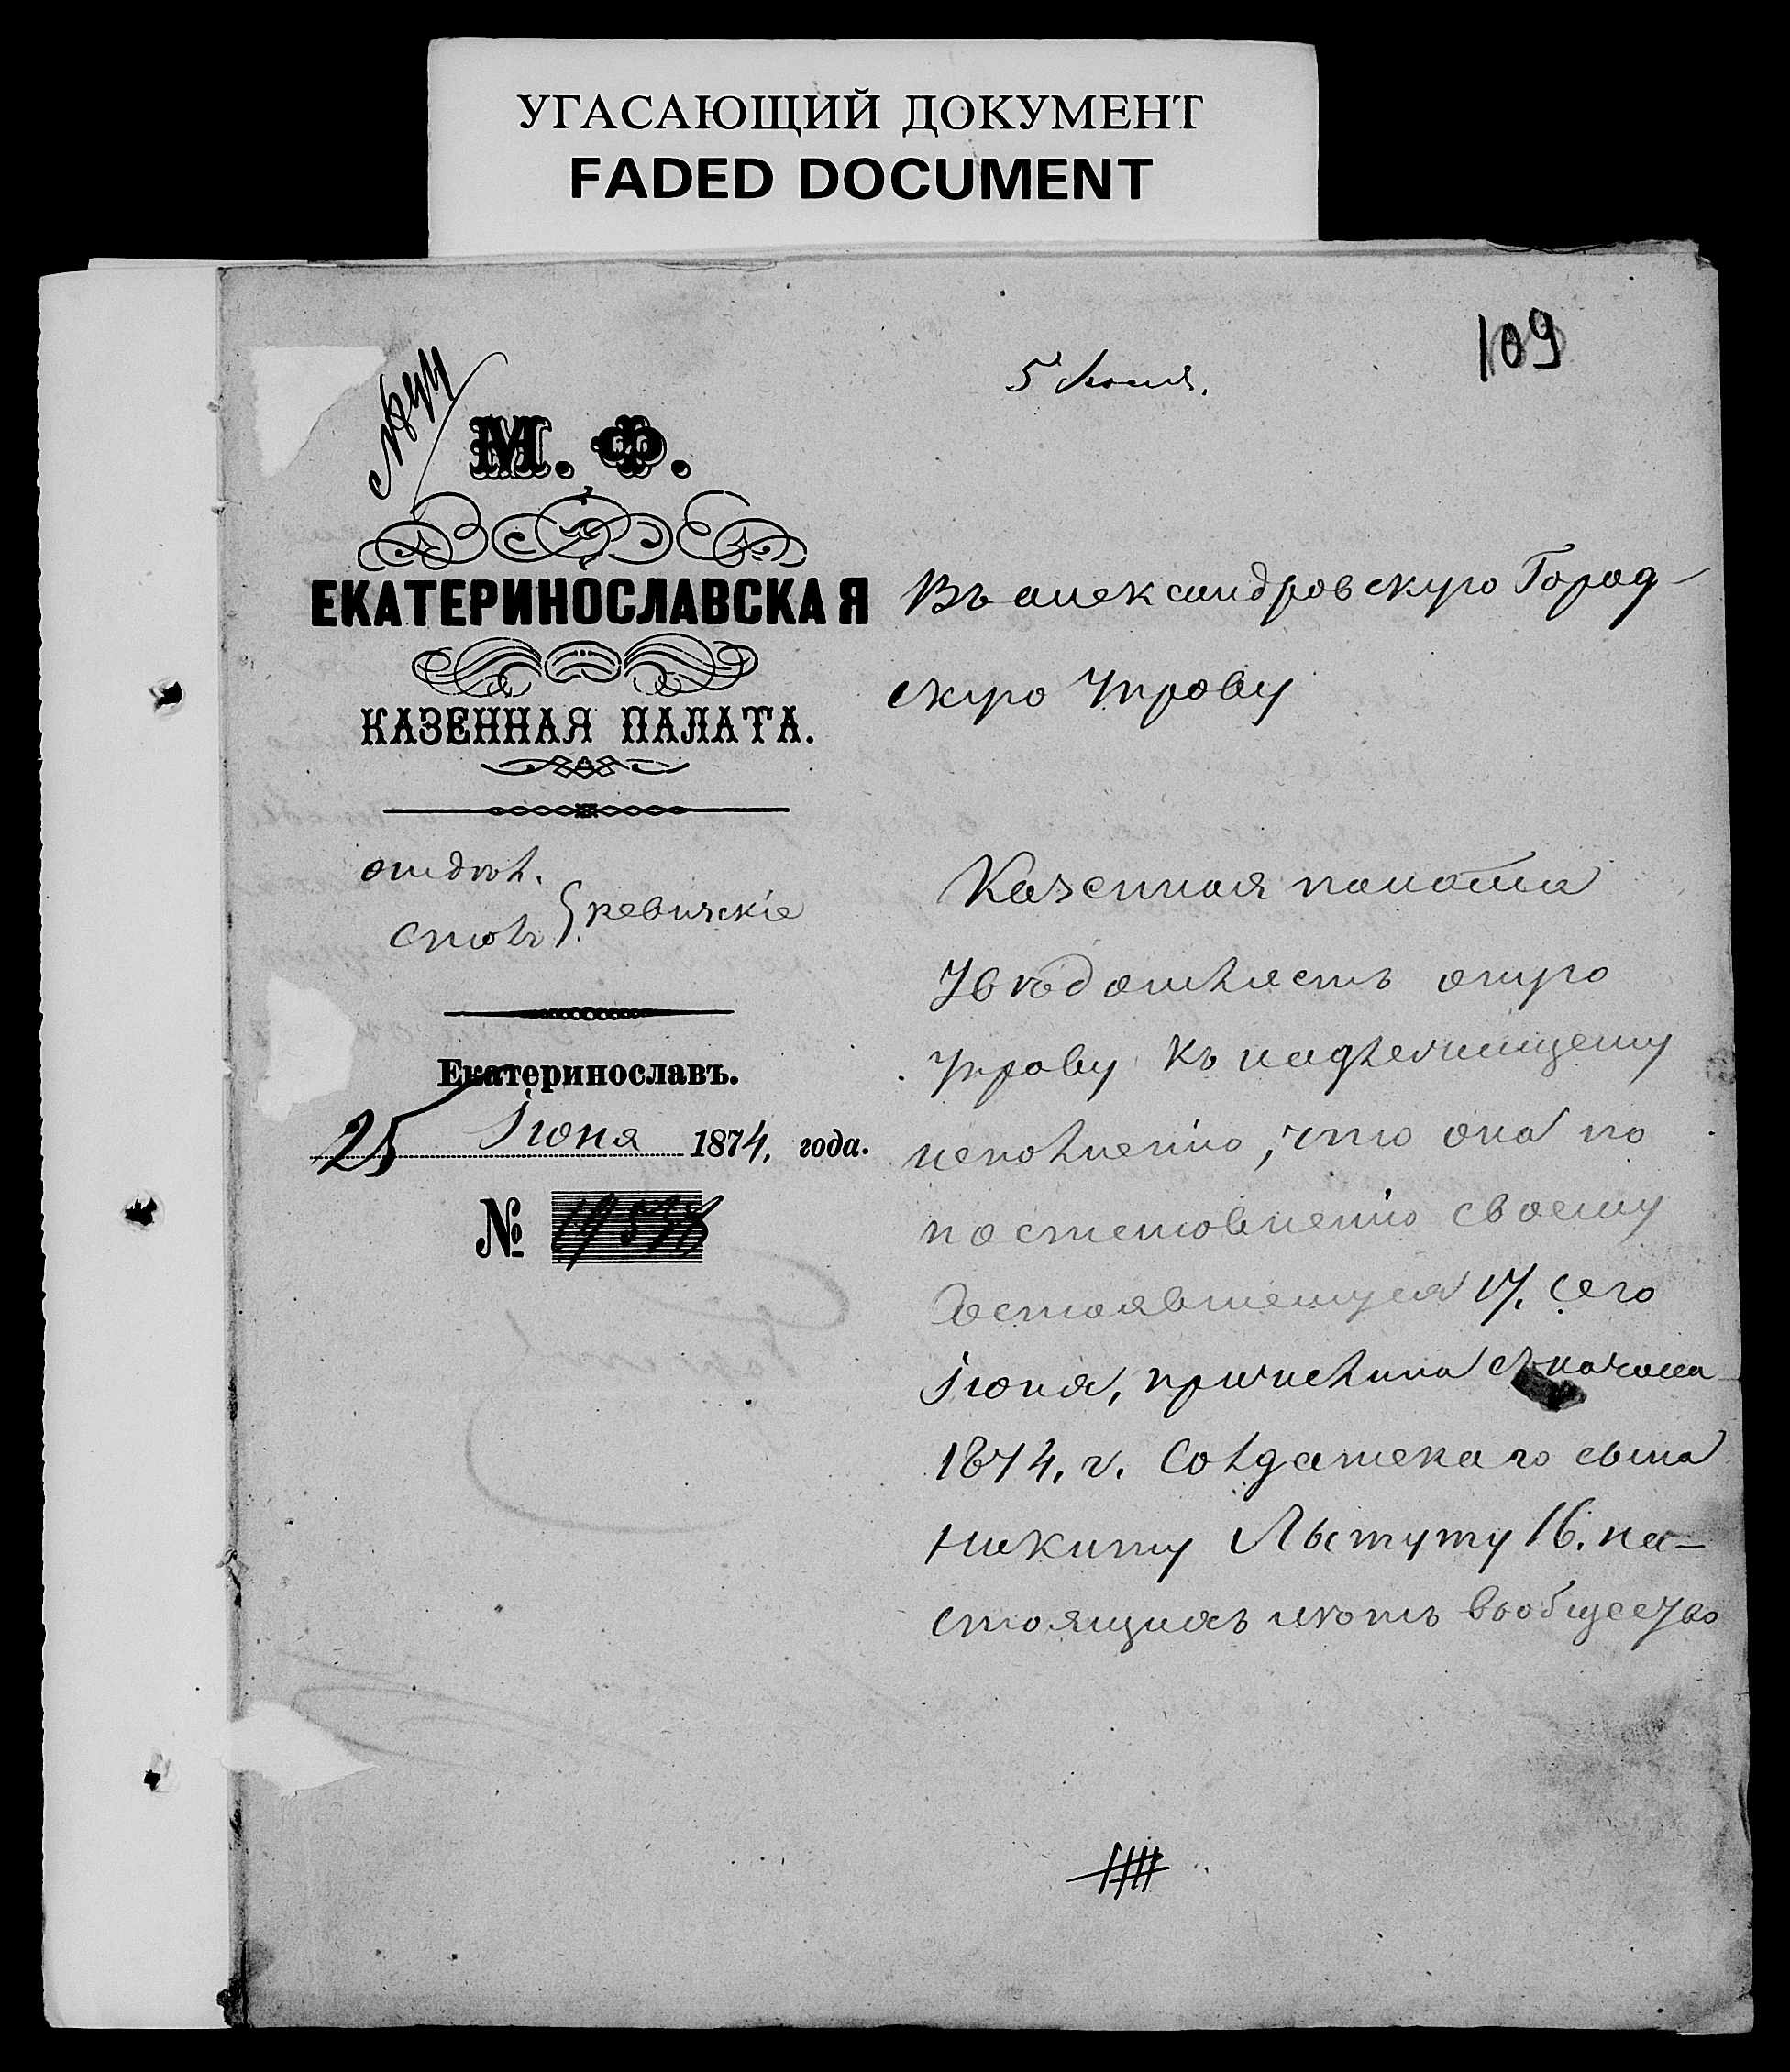 УГАСАЮЩИЙ ДОКУМЕНТ
FADED DOCUMENT
109
5 Июля.
М. Ф.
ЕКАТЕРИНОСЛАВСКАЯ
КАЗЕННАЯ ПАЛАТА.
отдѣл.
столъ
ревизскіе
Екатеринославъ.
25 Іюня 1874, года.
№
Въ александровскую Город-
скую Управу
Казенная палата
Увѣдомляетъ оную
Управу къ надлежащему
исполненію, что она по
постановленію своему
состоявшемуся 17. сего
Іюня, причислила съ начала
1874. г. Солдатскаго сына
Никиту Лытуту 16. на-
стоящихъ лѣтъ вобщество